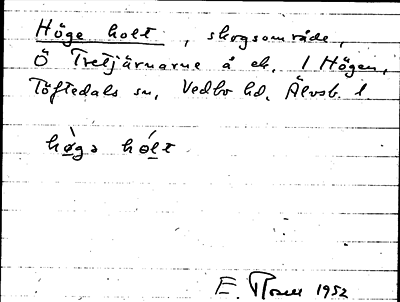 Höge holt, skogsområde,
Ö Tretjärnarne å ek. 1 Högen,
Töftedals sn, Vedbo hd, Älvsb. l.
hø̀gə hɷ́lt
E. 1952